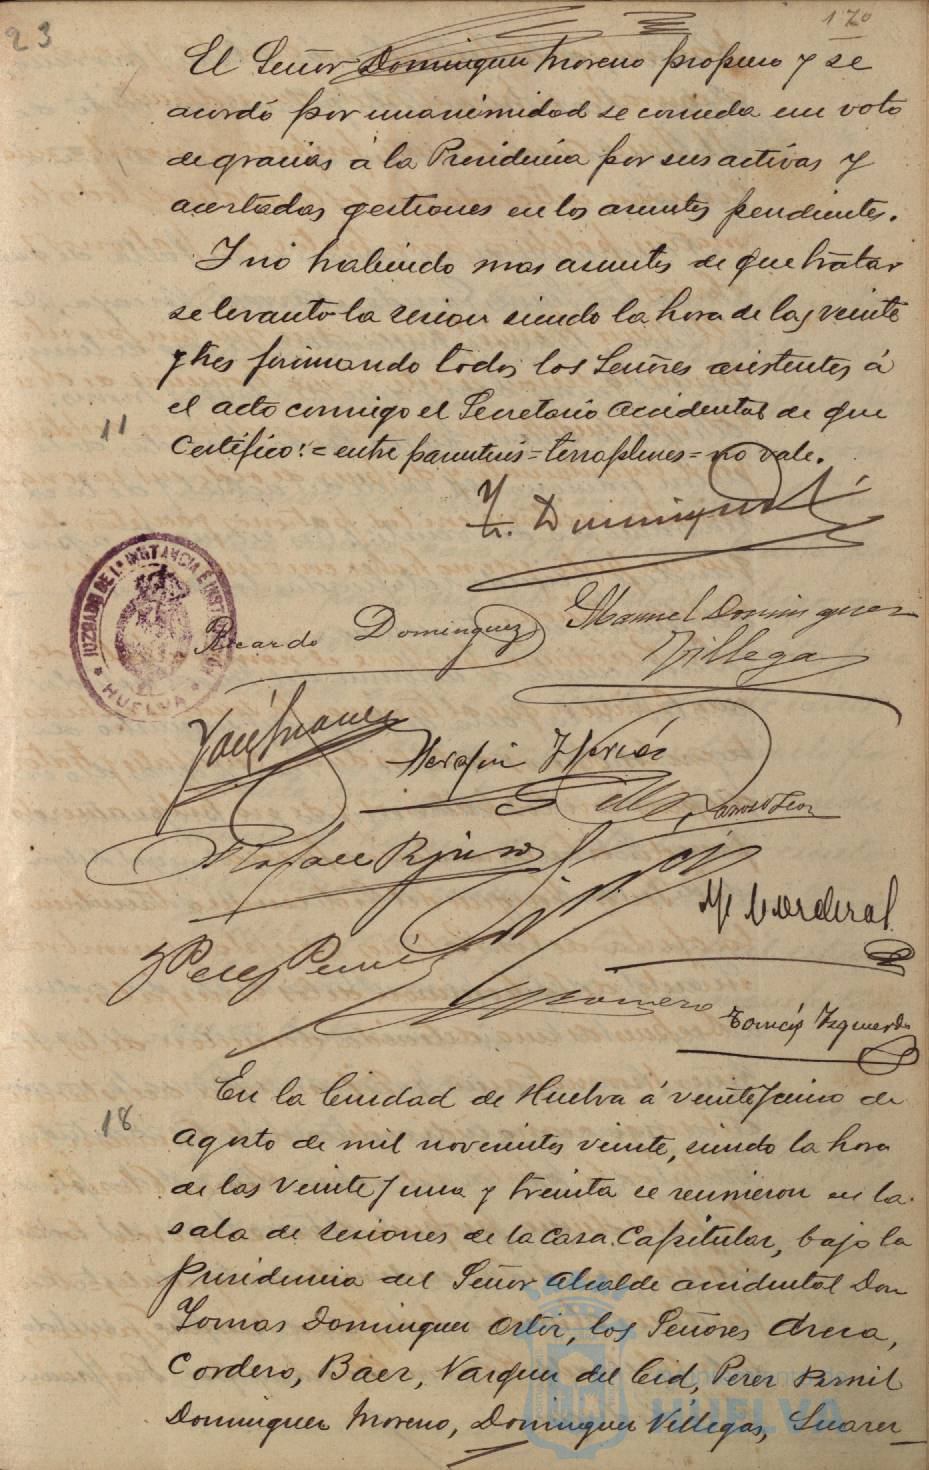 23
170
El Señor Dominguez Moreno propuso y se
acordó por unanimidad se conceda un voto
de gracias á la Presidencia por sus activas y
acertadas gestiones en los asuntos pendientes.
Y no habiendo mas asuntos de que tratar
se levanto la sesion siendo la hora de las veinte
y tres firmando todos los Señores asistentes á
el acto conmigo el Secretario accidental de que
11
Certifico: = entre parentesis = terraplenes = no vale.
T. Dominguez
JUZGADO DE 1ª INSTANCIA É INSTRUCCION
HUELVA
Ricardo Dominguez
Manuel Dominguez
Villegas
José Suarez
Serafin
Rafael
M Cordero
J Perez
Romero
Tomás Izquierdo
18
En la Ciudad de Huelva á veinte y cinco de
Agosto de mil novecientos veinte, siendo la hora
de las veinte y una y treinta se reunieron en la
sala de sesiones de la Casa Capitular, bajo la
presidencia del Señor Alcalde accidental Don
Tomas Dominguez Ortiz, los Señores
Cordero, Baez, Vazquez del Cid, Perez
Dominguez Moreno, Dominguez Villegas, Suarez
HUELVA